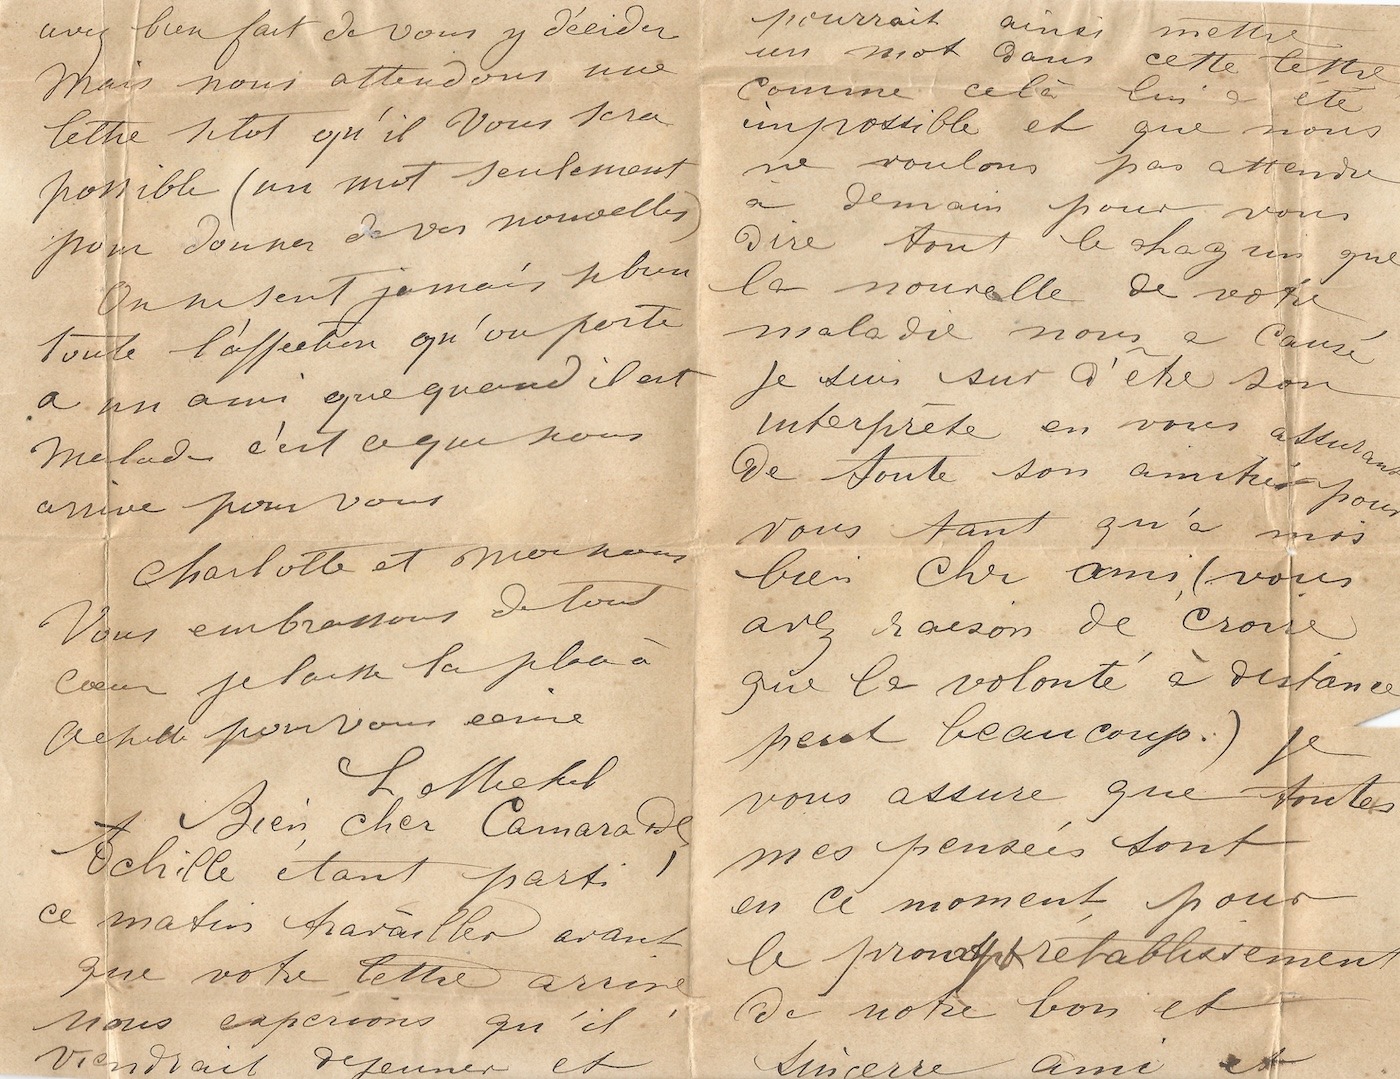 avez bien fait de vous y décider
Mais nous attendons une
lettre sitot qu'il vous sera
possible (un mot seulement
pour donner de vos nouvelles)
On ne sent jamais si bien
toute l'affection qu'on porte
a un ami que quand il est
Malade c'est ce que nous
arrive pour vous
Charlotte et moi nous
Vous embrassons de tout
cœur je laisse la place à
Achille pour vous ecrire
L Michel
Bien cher Camarade,
Achille étant parti
ce matin travailler avant
que votre lettre arrive
nous espérions qu'il
viendrait dejeuner et
pourrait ainsi mettre
un mot dans cette lettre
comme celà lui a été
impossible et que nous
ne voulons pas attendre
à demain pour vous
dire tout le chagrin que
la nouvelle de votre
maladie nous a causé
je suis sur d'être son
interprète en vous assurant
de toute son amitié pour
vous tant qu'a moi
bien cher ami, (vous
avez raison de croire
que la volonté à distance
peut beaucoup.) je
vous assure que toutes
mes pensées sont
en ce moment pour
le prompt rétablissement
de notre bon et
sincerre ami et